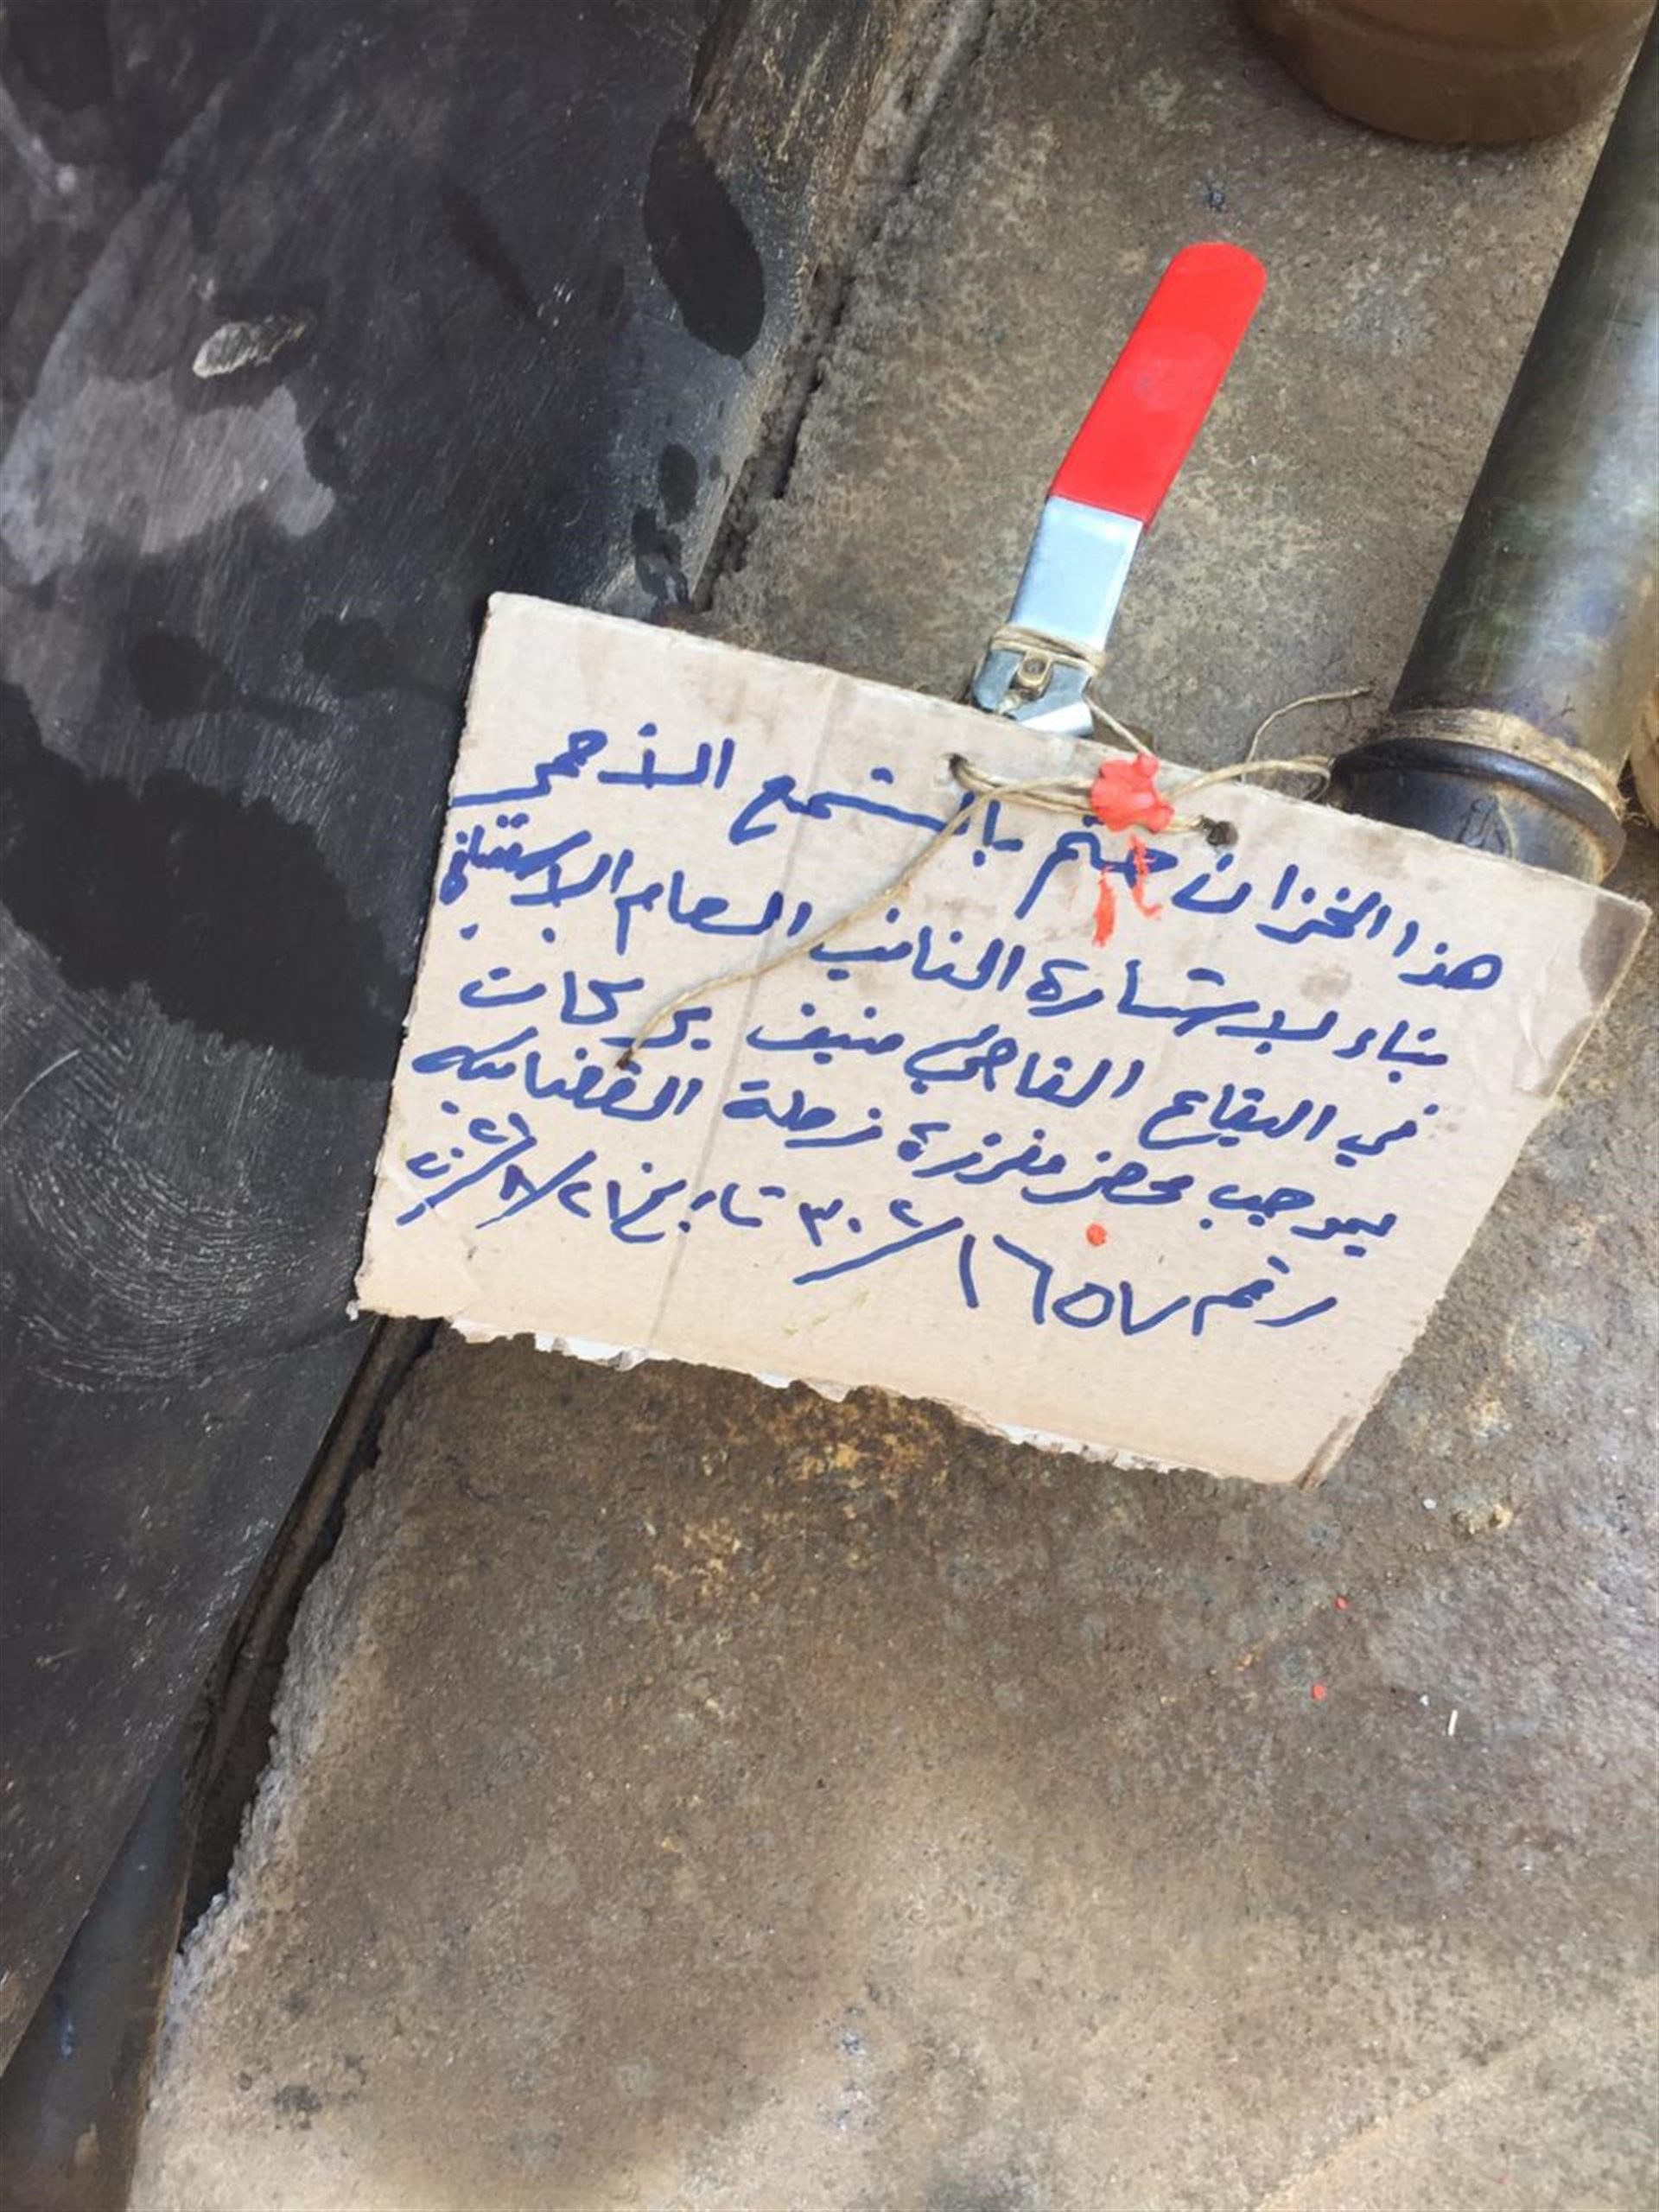 هذا الخزان ختم بالشمع الأحمر
بناء لاشارة النائب العام الاستئنافي
في البقاع القاضي منيف بركات
بموجب محضر مفرزة زحلة القضائية
رقم ١٦٥٧/٣٠٢ تاريخ ٢١/٨/٢٠٢١